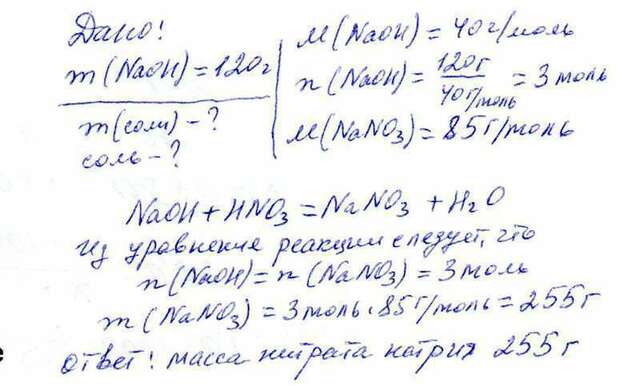 Дано!
m(NaOH)=120г
m(соли)-?
соль-?
M(NaOH)=40г/моль
n(NaOH)=120г/40г/моль=3моль
M(NaNO3)=85г/моль
NaOH+HNO3=NaNO3+H2O
Из уравнение реакции следует, что
n(NaOH)=n(NaNO3)=3моль
m(NaNO3)=3моль·85г/моль=255г
ответ! масса нитрата натрия 255г
е